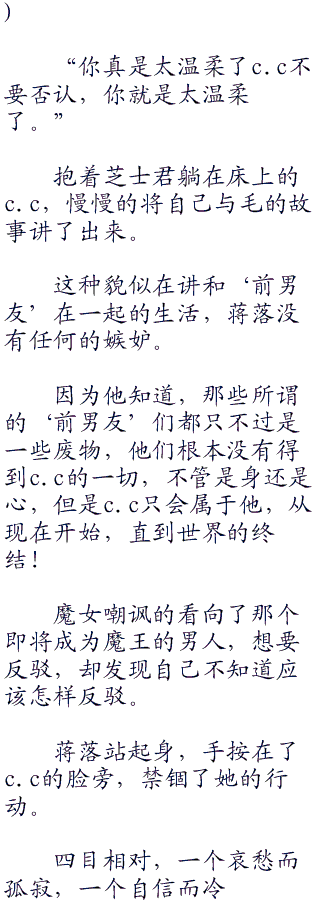 )
“你真是太温柔了c.c不
要否认，你就是太温柔
了。”
抱着芝士君躺在床上的
c.c，慢慢的将自己与毛的故
事讲了出来。
这种貌似在讲和‘前男
友’在一起的生活，蒋落没
有任何的嫉妒。
因为他知道，那些所谓
的‘前男友’们都只不过是
一些废物，他们根本没有得
到c.c的一切，不管是身还是
心，但是c.c只会属于他，从
现在开始，直到世界的终
结！
魔女嘲讽的看向了那个
即将成为魔王的男人，想要
反驳，却发现自己不知道应
该怎样反驳。
蒋落站起身，手按在了
c.c的脸旁，禁锢了她的行
动。
四目相对，一个哀愁而
孤寂，一个自信而冷